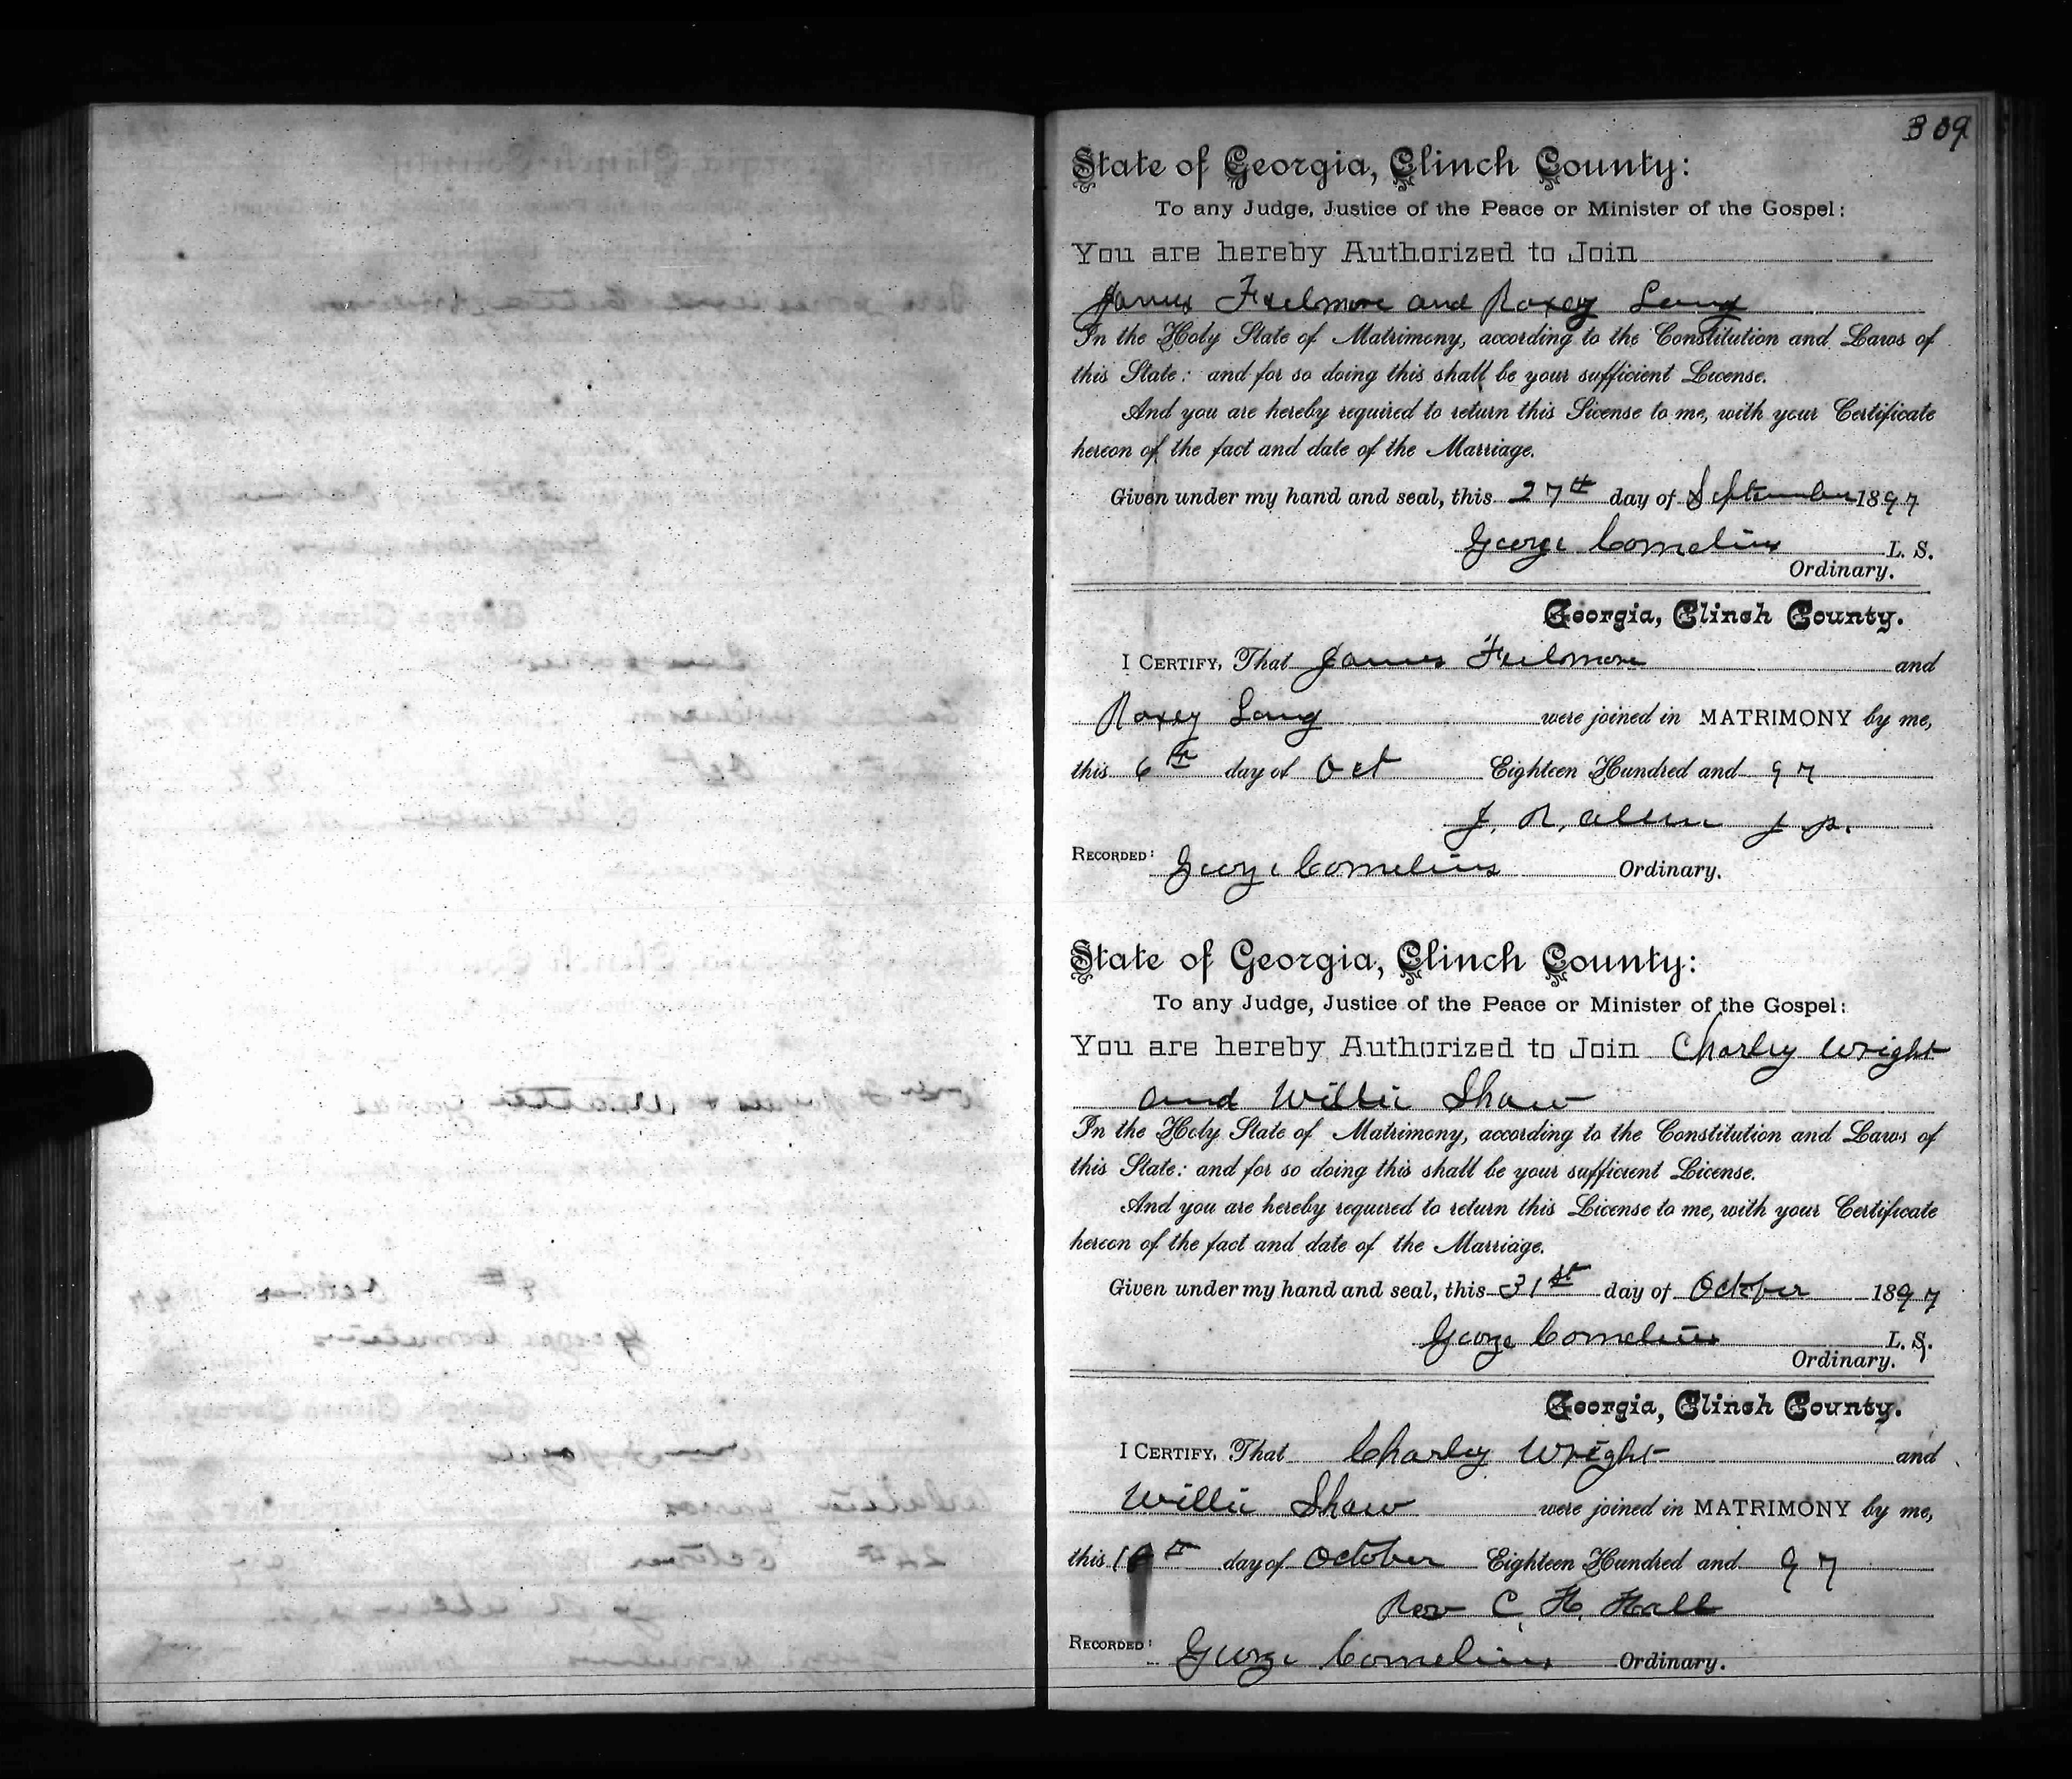 309
State of Georgia, Clinch County:
To any Judge, Justice of the Peace or Minister of the Gospel:
You are hereby Authorized to Join
James Fielmore and Roxey Long
In the Holy State of Matrimony, according to the Constitution and Laws of
this State: and for so doing this shall be your sufficient License.
And you are hereby required to return this License to me, with your Certificate
hereon of the fact and date of the Marriage.
Given under my hand and seal, this 27th day of September 1897
George Cornelius L. S.
Ordinary.
Georgia, Clinch County.
I CERTIFY, That James Fielmore and
Roxey Long were joined in MATRIMONY by me,
this 6th day of Oct Eighteen Hundred and 97
J. R. Allen J. P.
RECORDED: George Cornelius Ordinary.
State of Georgia, Clinch County:
To any Judge, Justice of the Peace or Minister of the Gospel:
You are hereby Authorized to Join Charley Wright
and Willie Shaw
In the Holy State of Matrimony, according to the Constitution and Laws of
this State: and for so doing this shall be your sufficient License.
And you are hereby required to return this License to me, with your Certificate
hereon of the fact and date of the Marriage.
Given under my hand and seal, this 31st day of October 1897
George Cornelius L. S.
Ordinary.
Georgia, Clinch County.
I CERTIFY, That Charley Wright and
Willie Shaw were joined in MATRIMONY by me,
this day of October Eighteen Hundred and 97
Rev C. H. Hall
RECORDED: George Cornelius Ordinary.